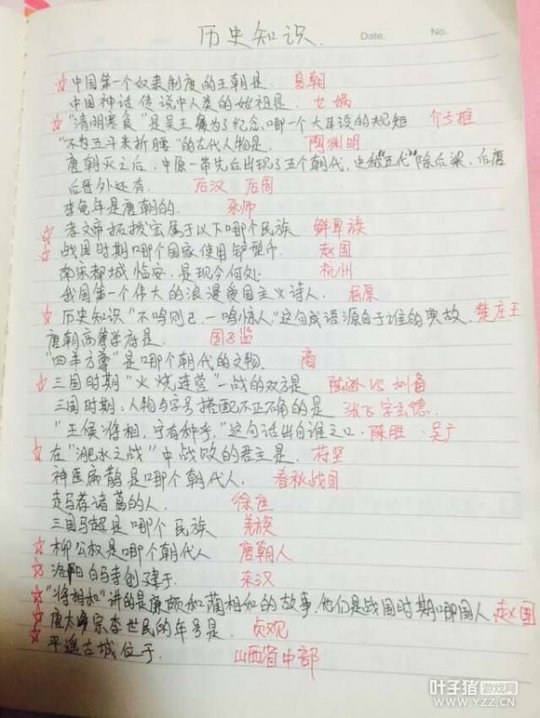 历史知识.
Date. No.
☆中国第一个奴隶制度的王朝是. 夏朝
中国神话传说中人类的始祖是. 女娲
☆"清明寒食"是吴王为了纪念哪一个大臣设的规矩 介子推
"不为五斗米折腰"的古代人物是. 陶渊明
唐朝灭之后.中原一带先后出现了五个朝代,史称"五代"除后梁.后唐
后晋外还有. 后汉 后周
李龟年是唐朝的. 乐师
☆孝文帝拓拔宏属于以下哪个民族 鲜卑族
☆战国时期哪个国家使用铲型币. 赵国
南宋都城临安.是现今何处. 杭州
我国第一个伟大的浪漫爱国主义诗人. 屈原
☆历史知识"不鸣则已.一鸣惊人"这句成语源自于谁的典故. 楚庄王
唐朝高等学府是. 国子监
"四羊方尊"是哪个朝代的文物. 商
☆三国时期"火烧连营"一战的双方是 陆逊VS刘备
三国时期.人物与字号搭配不正确的是 张飞字玄德.
"王侯将相,宁有种乎,"这句话出自谁之口. 陈胜、吴广
☆在"淝水之战"中战败的君主是. 苻坚
神医扁鹊是哪个朝代人. 春秋战国
走马荐诸葛的人. 徐庶
三国马超是哪个民族 羌族
☆柳公权是哪个朝代人 唐朝人
☆洛阳白马寺创建于. 东汉
☆"将相和"讲的是廉颇和蔺相如的故事.他们是战国时期哪国人. 赵国
☆唐太宗李世民的年号是. 贞观
☆平遥古城位于. 山西省中部
叶子猪游戏网
WWW.YZZ.CN